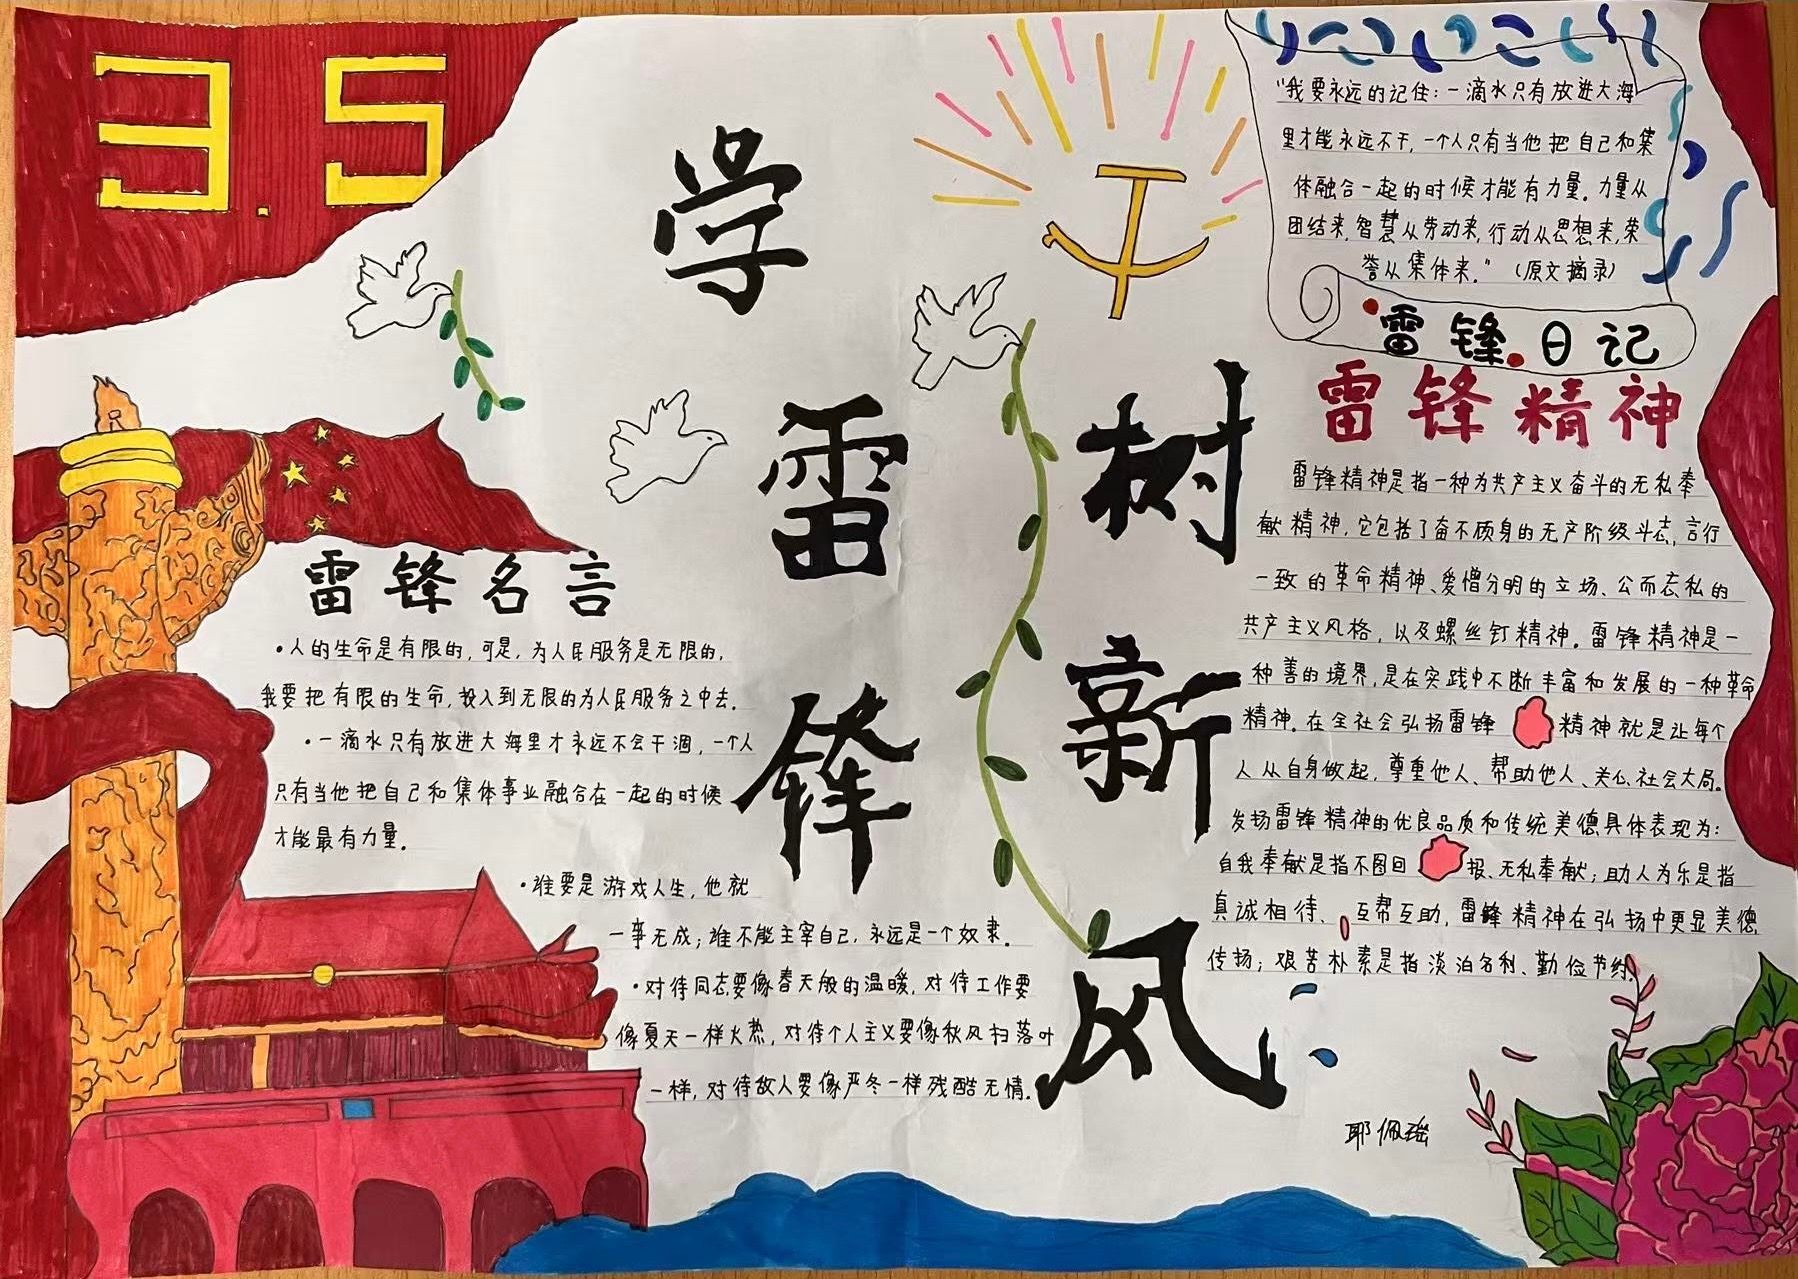 3.5
学雷锋
树新风
"我要永远的记住：一滴水只有放进大海
里才能永远不干，一个人只有当他把自己和集
体融合一起的时候才能有力量。力量从
团结来，智慧从劳动来，行动从思想来，荣
誉从集体来。"（原文摘录）
雷锋日记
雷锋精神
雷锋精神是指一种为共产主义奋斗的无私奉
献精神，它包括了奋不顾身的无产阶级斗志，言行
一致的革命精神、爱憎分明的立场、公而忘私的
共产主义风格，以及螺丝钉精神。雷锋精神是一
种善的境界，是在实践中不断丰富和发展的一种革命
精神。在全社会弘扬雷锋精神就是让每个
人从自身做起，尊重他人、帮助他人、关心社会大局。
发扬雷锋精神的优良品质和传统美德具体表现为：
自我奉献是指不图回报、无私奉献；助人为乐是指
真诚相待、互帮互助，雷锋精神在弘扬中更显美德
传扬；艰苦朴素是指淡泊名利、勤俭节约
雷锋名言
·人的生命是有限的，可是，为人民服务是无限的，
我要把有限的生命，投入到无限的为人民服务之中去。
·一滴水只有放进大海里才永远不会干涸，一个人
只有当他把自己和集体事业融合在一起的时候
才能最有力量。
·谁要是游戏人生，他就
一事无成；谁不能主宰自己，永远是一个奴隶。
·对待同志要像春天般的温暖，对待工作要
像夏天一样火热，对待个人主义要像秋风扫落叶
一样，对待敌人要像严冬一样残酷无情。
佩瑶